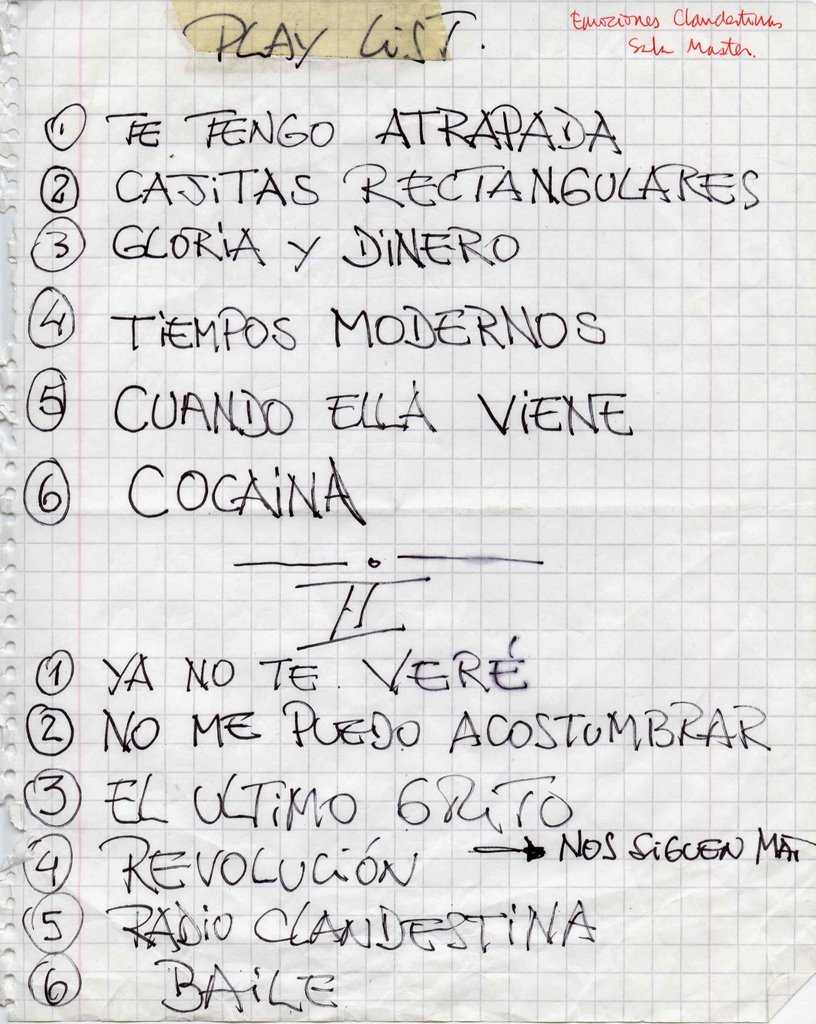 PLAY LIST.
Emociones Clandestinas
Sala Master.
1. TE TENGO ATRAPADA
2 CAJITAS RECTANGULARES
3 GLORIA Y DINERO
4 TIEMPOS MODERNOS
5 CUANDO ELLA VIENE
6 COCAINA
II
1 YA NO TE VERÉ
2 NO ME PUEDO ACOSTUMBRAR
3 EL ULTIMO GRITO
4 REVOLUCIÓN → NOS SIGUEN MAT
5 RADIO CLANDESTINA
6 BAILE